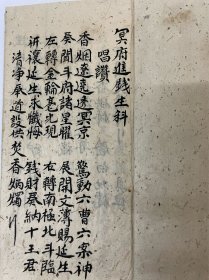 冥府進錢生科
唱讚
香烟遶遶透冥京　驚動六曹六案神
癸闕斗府諸星曜　展開文簿賜延生
左轉金輪毫光現　右轉南極北斗臨
祈禳延生求懺悔　錢財奉納十王君
清淨奉道設供焚香炳燭